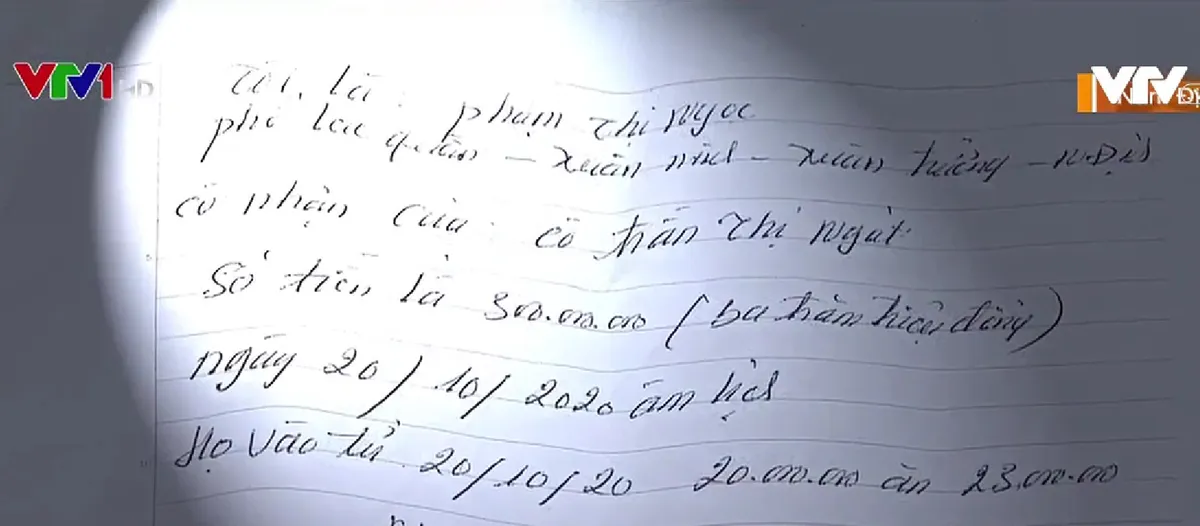 VTV1 HD
VTV
Nam Đị
Tôi, là: phạm Thị Ngọc
phố Lạc quần - xuân ninh - xuân trường - N.Định
có nhận của: cô trần Thị Ngát
Số tiền là 300.000.000 (ba trăm triệu đồng)
ngày 20/10/2020 âm lịch
Họ vào từ 20/10/20 20.000.000 ăn 23.000.000